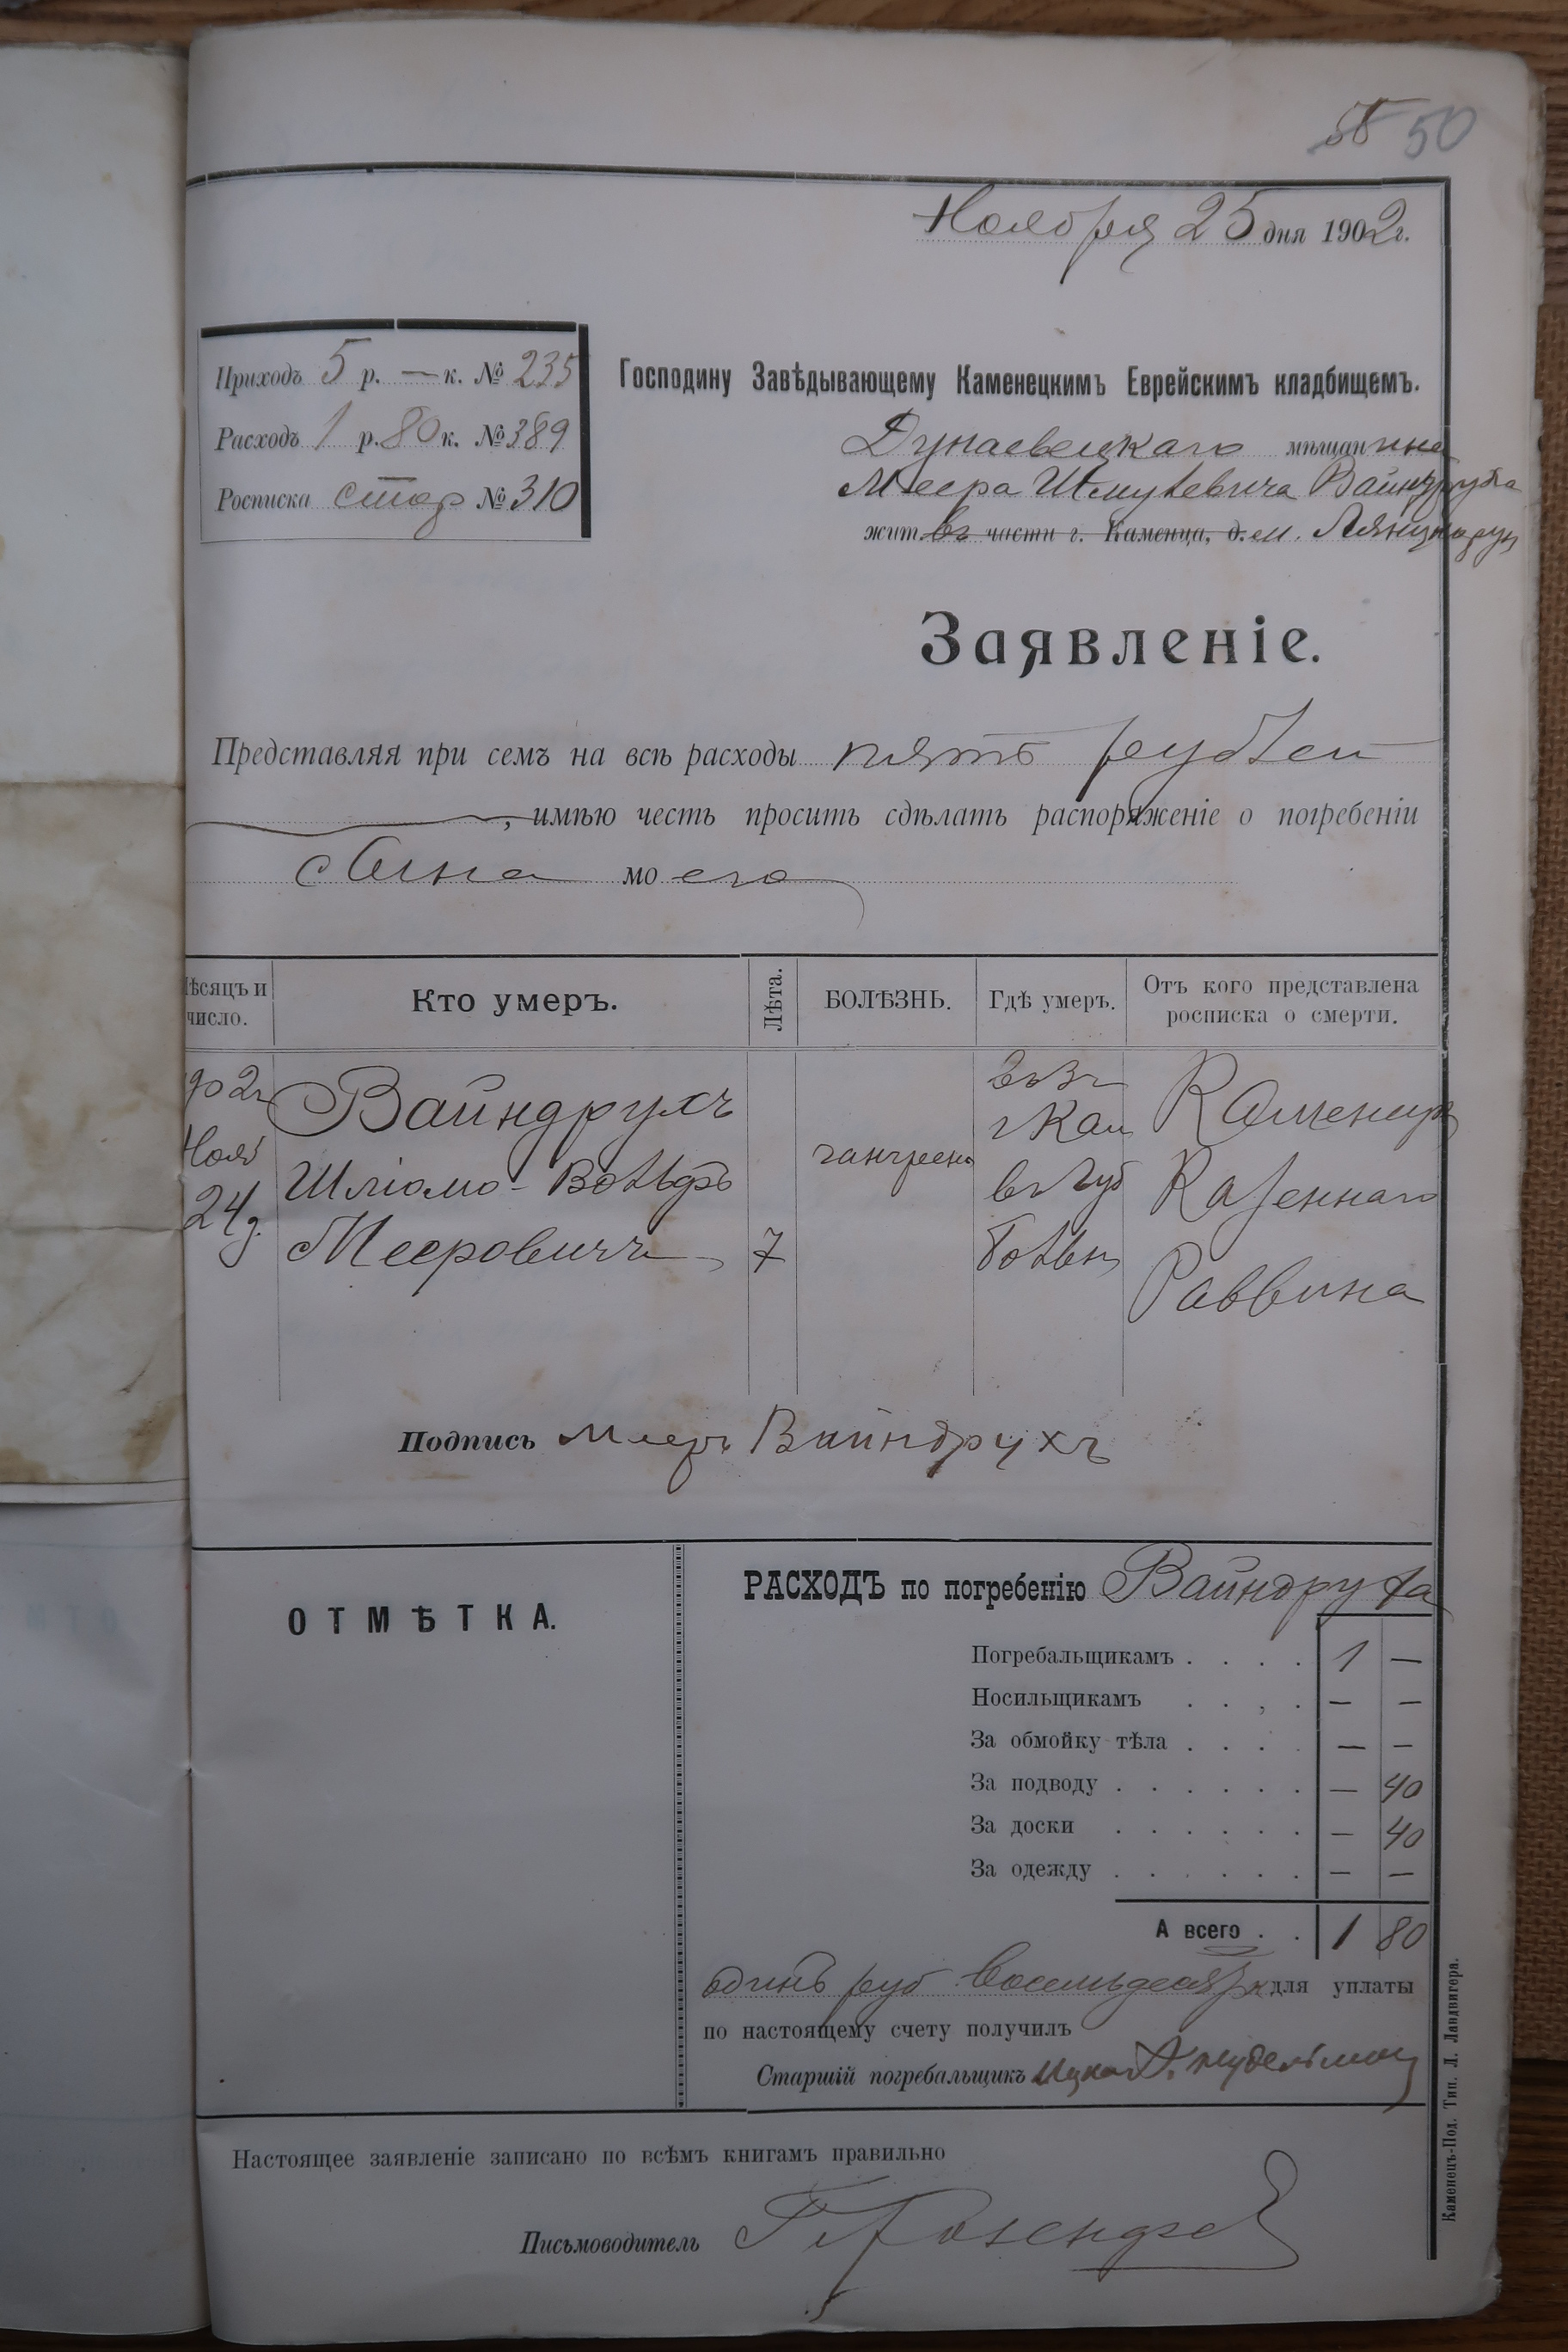 58 50
Ноября 25 дня 1902 г.
Приходъ 5 р. — к. № 235
Расходъ 1 р. 80 к. № 389
Росписка стор № 310
Господину Завѣдывающему Каменецкимъ Еврейскимъ кладбищемъ.
Дунаевецкаго мѣщанина
Меера Шмулевича Вайндруха
жит. въ части г. Каменца, д. м.
Заявленіе.
Представляя при семъ на всѣ расходы пять рублей
, имѣю честь просить сдѣлать распоряженіе о погребеніи
сына моего
Мѣсяцъ и число.
Кто умеръ.
Лѣта.
БОЛѢЗНЬ.
Гдѣ умеръ.
Отъ кого представлена росписка о смерти.
1902 г
Нояб
24 д.
Вайндрухъ
Шліомо-Вольфъ
Мееровичъ
7
гангрена
г Кам
въ Губ
больн
Каменец
Казеннаго
Раввина
Подпись Мееръ Вайндрухъ
ОТМѢТКА.
РАСХОДЪ по погребенію Вайндруха
Погребальщикамъ . . . . 1 —
Носильщикамъ . . , . — —
За обмойку тѣла . . . . — —
За подводу . . . . . . — 40
За доски . . . . . . — 40
За одежду . . . . . . — —
А всего . . 1 80
одинъ руб восемьдесят к для уплаты
по настоящему счету получилъ
Старшій погребальщикъ
Настоящее заявленіе записано по всѣмъ книгамъ правильно
Письмоводитель
Каменецъ-Под. Тип. Л. Ландвигера.